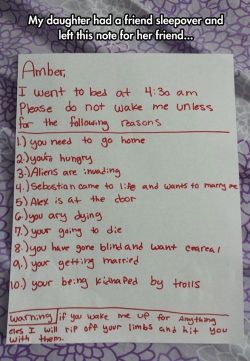 My daughter had a friend sleepover and
left this note for her friend...
Amber,
I went to bed at 4:30 am
Please do not wake me unless
for the following reasons
1.) you need to go home
2.) your hungry
3.) Aliens are invading
4.) Sebastian came to life and wants to marry me
5.) Alex is at the door
6.) you ary dying
7.) your going to die
8.) you have gone blind and want cereal
9.) your getting married
10.) your being kidnaped by trolls
warning if you wake me up for anything
eles I will rip off your limbs and hit you
with them.